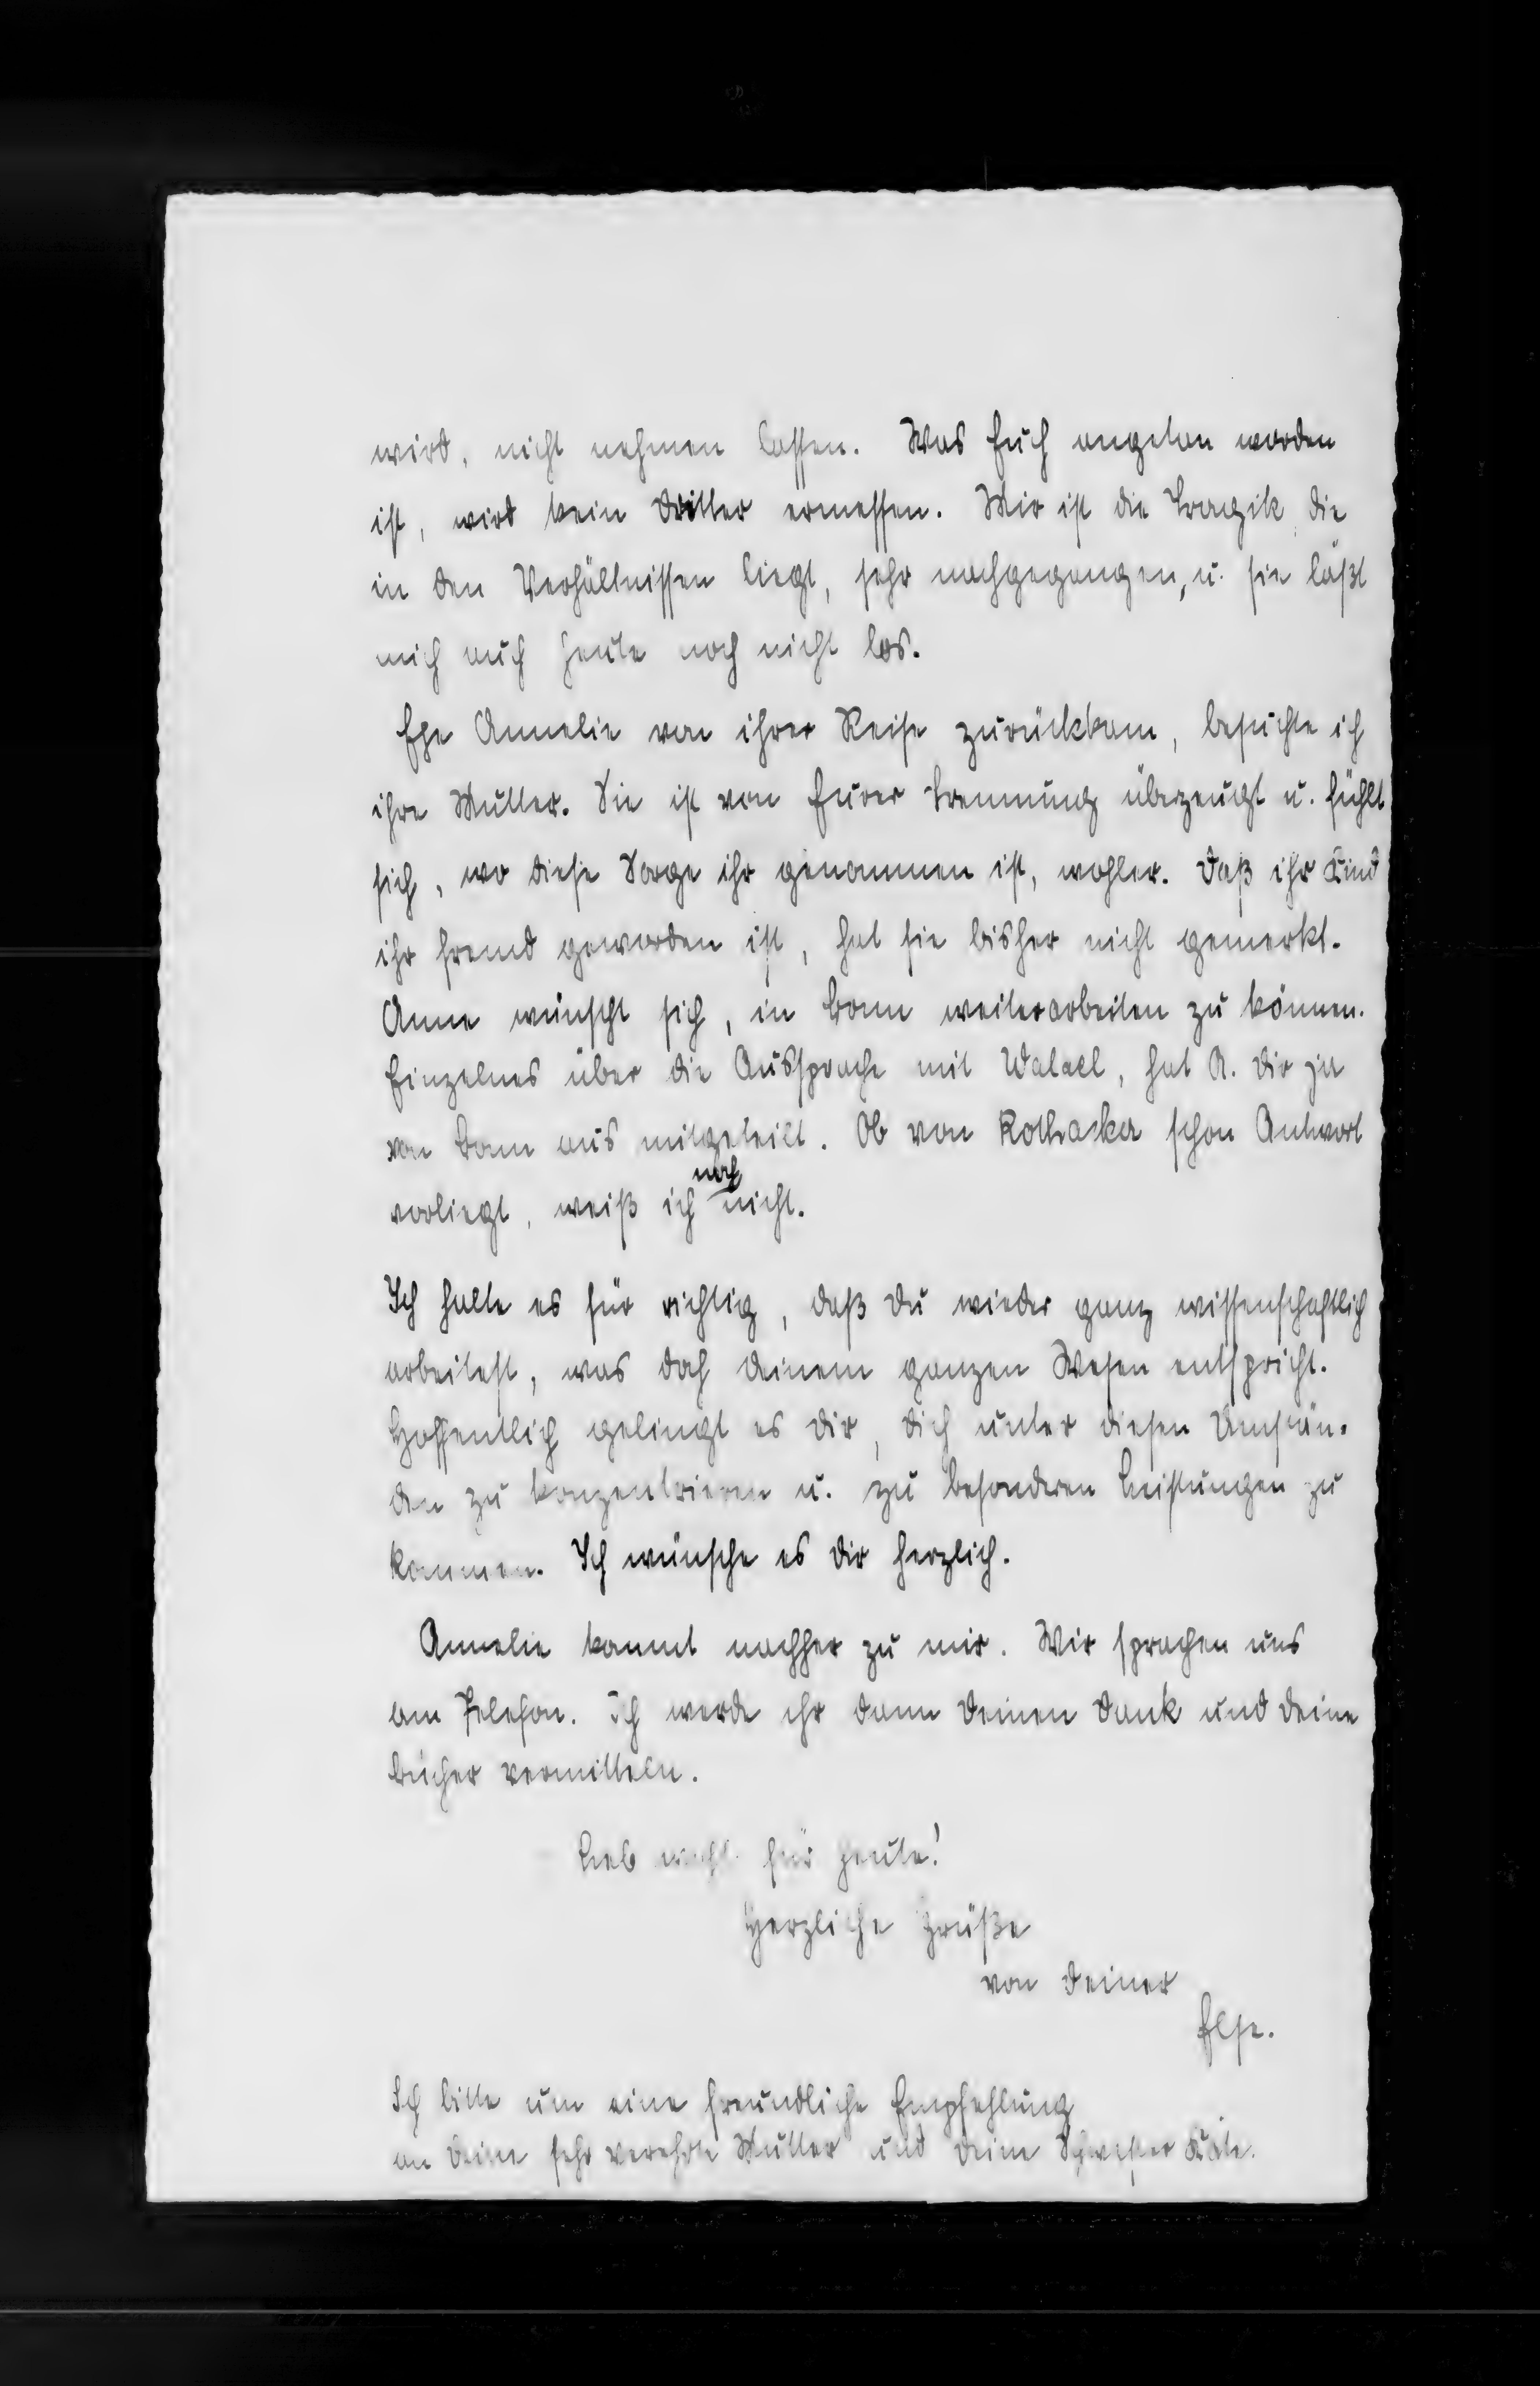 wird, nicht nehmen lassen. Was Euch angetan worden
ist, wird kein Dritter ermessen. Mir ist die Tragik, die
in den Verhältnissen liegt, sehr nachgegangen, u. sie läßt
mich auch heute noch nicht los.
Ehe Annelie von ihrer Reise zurückkam, besuchte ich
ihre Mutter. Sie ist von Eurer Trennung überzeugt u. fühlt
sich, wo diese Sorge ihr genommen ist, wohler. Daß ihr Kind
ihr fremd geworden ist, hat sie bisher nicht gemerkt.
Anne wünscht sich, in Bonn weiterarbeiten zu können.
Einzelnes über die Aussprache mit, hat A. Dir ja
von Bonn aus mitgeteilt. Ob von Rothacker schon Antwort
vorliegt, weiß ich noch nicht.
Ich halte es für richtig, daß Du wieder ganz wissenschaftlich
arbeitest, was doch Deinem ganzen Wesen entspricht.
Hoffentlich gelingt es Dir, Dich unter diesen Umstän-
den zu konzentrieren u. zu besonderen Leistungen zu
kommen. Ich wünsche es Dir herzlich.
Annelie kommt nachher zu mir. Wir sprachen uns
am Telefon. Ich werde ihr dann Deinen Dank und Deine
Bücher vermitteln.
Leb für heute!
Herzliche Grüße
von Deiner
Else.
Ich bitte um eine freundliche Empfehlung
an Deine sehr verehrte Mutter und Deine Schwester Käte.